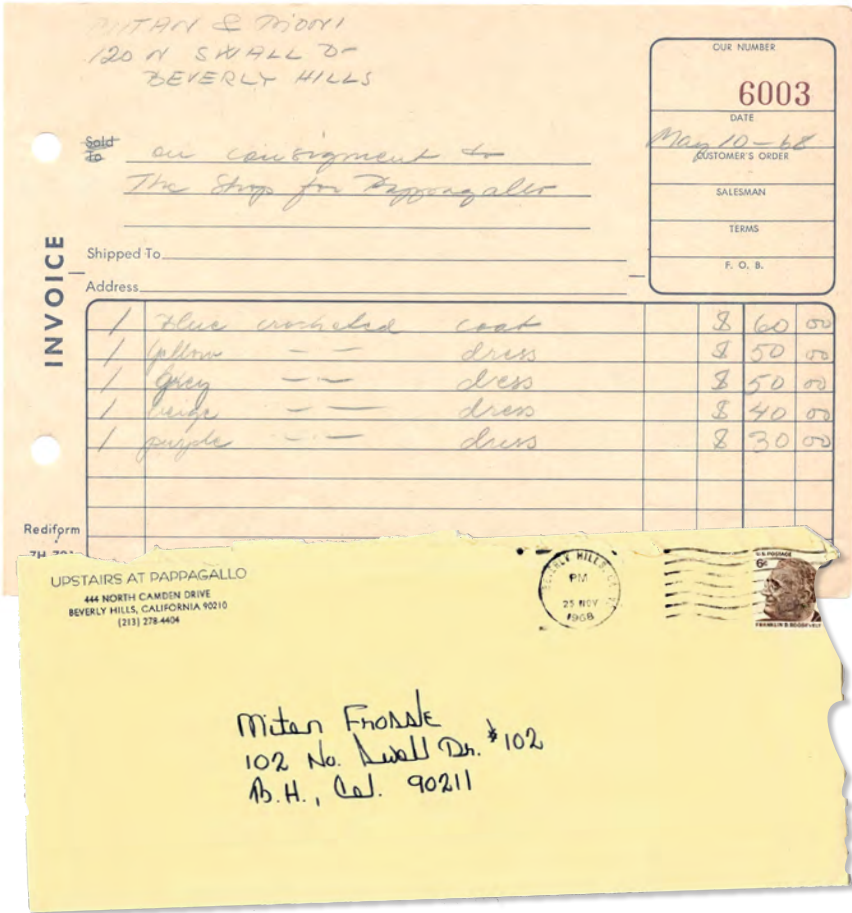 MITAN & MIONI
120 N SWALL Dr
BEVERLY HILLS
OUR NUMBER
6003
DATE
May 10-68
CUSTOMER'S ORDER
SALESMAN
TERMS
F. O. B.
Sold
To
on consigment to
The Shop for Pappagallo
Shipped To
Address
INVOICE
1 Blue crocheted coat $ 60 00
1 yellow — — dress $ 50 00
1 Grey — — dress $ 50 00
1 beige — — dress $ 40 00
1 purple — — dress $ 30 00
Rediform
UPSTAIRS AT PAPPAGALLO
444 NORTH CAMDEN DRIVE
BEVERLY HILLS, CALIFORNIA 90210
(213) 278-4404
BEVERLY HILLS, CA
PM
25 NOV
1968
U.S. POSTAGE
6¢
FRANKLIN D. ROOSEVELT
Miten Frossk
102 No. Swall Dr. #102
B.H., Cal. 90211